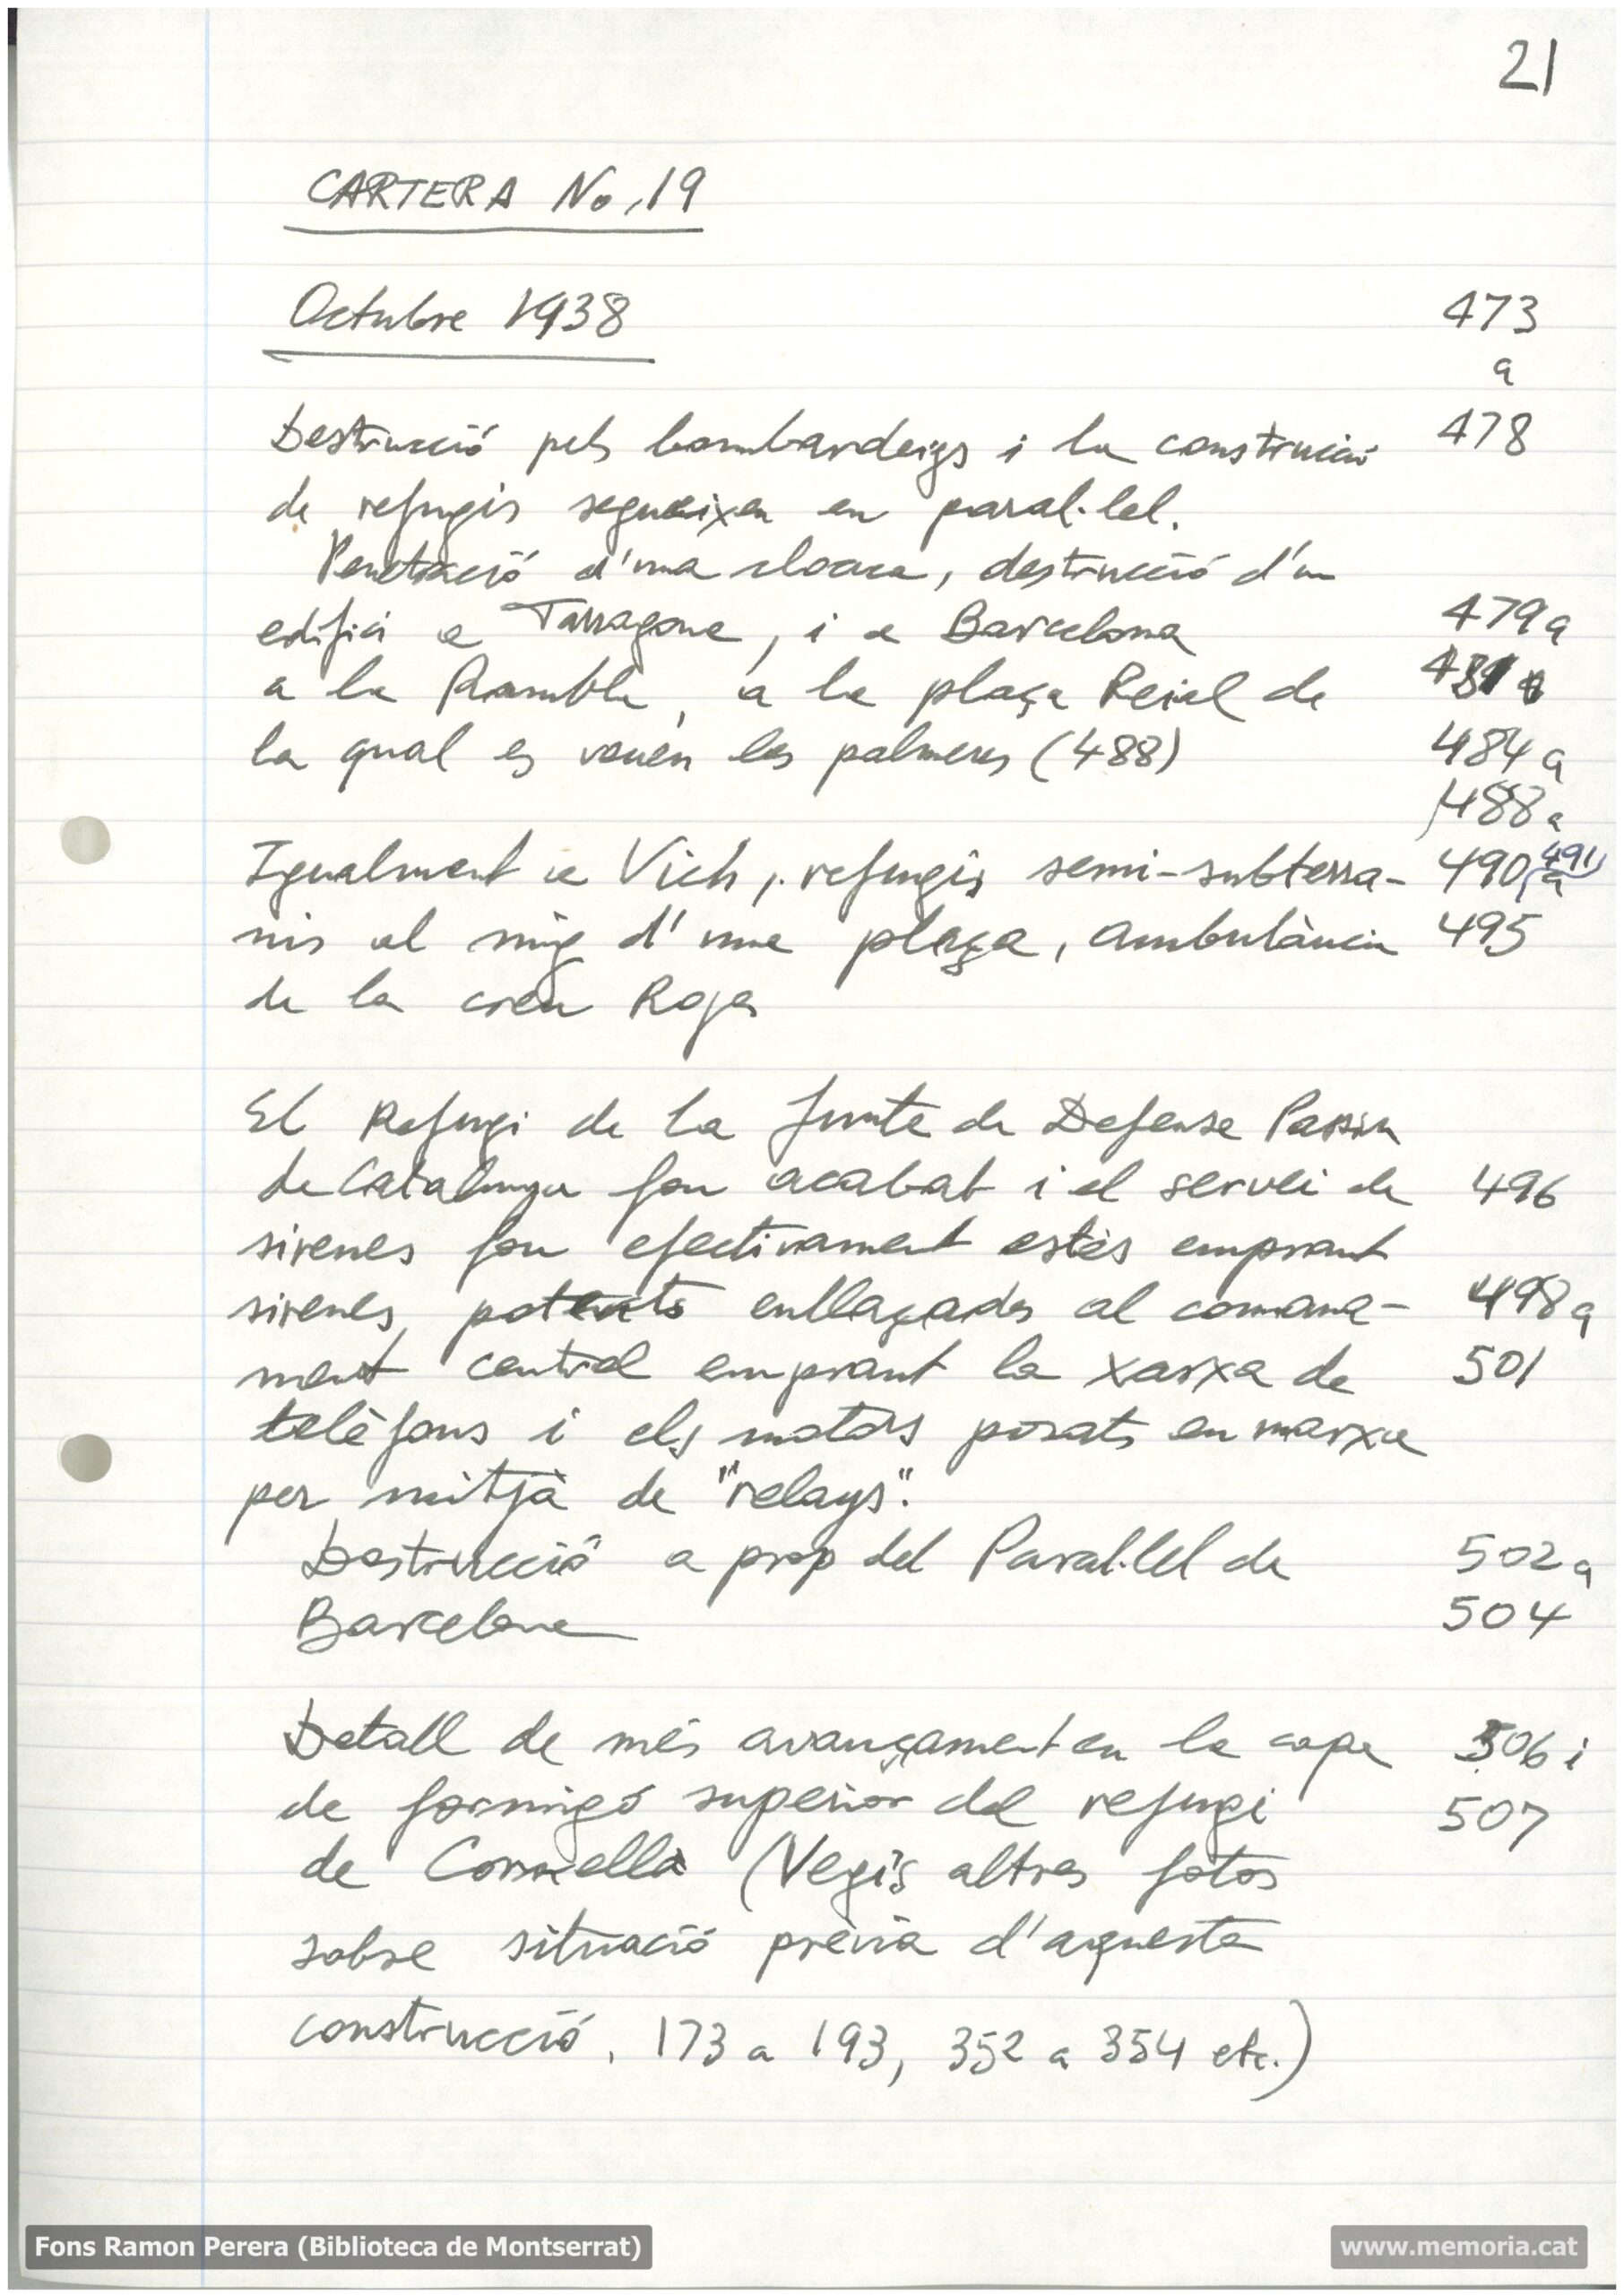 21
CARTERA No. 19
Octubre 1938 473
a
Destrucció pels bombardeigs i la construcció 478
de refugis segueixen en paral·lel.
Penetració d'una cloaca, destrucció d'un
edifici a Tarragona, i a Barcelona 479 a
a la Rambla, a la plaça Reial de
la qual es veuen les palmeres (488) 484 a
488 a
Igualment a Vich, refugis semi-subterra- 490, 491 a
nis al mig d'una plaça, ambulància 495
de la creu Roja
El Refugi de la Junta de Defensa Passiva
de Catalunya fou acabat i el servei de 496
sirenes fou efectivament estès emprant
sirenes potents enllaçades al comana- 498 a
ment central emprant la xarxa de 501
telèfons i els motors posats en marxa
per mitjà de "relays".
Destrucció a prop del Paral·lel de 502 a
Barcelona 504
Detall de més avançament en la capa 506 i
de formigó superior del refugi 507
de Cornellà (Vegis altres fotos
sobre situació prèvia d'aquesta
construcció, 173 a 193, 352 a 354 etc.)
Fons Ramon Perera (Biblioteca de Montserrat) www.memoria.cat